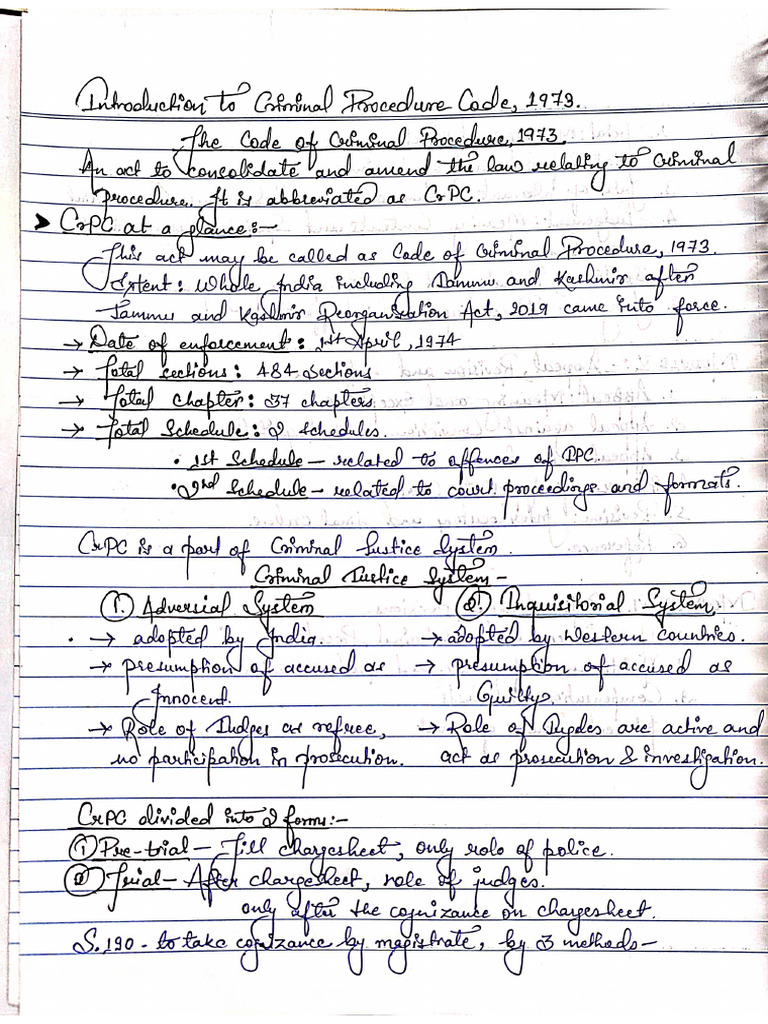 Introduction to Criminal Procedure Code, 1973.
The Code of Criminal Procedure, 1973.
An act to consolidate and amend the law relating to Criminal
procedure. It is abbreviated as CrPC.
➤ CrPC at a glance:-
This act may be called as Code of Criminal Procedure, 1973.
Extent: Whole India including Jammu and Kashmir after
Jammu and Kashmir Reorganisation Act, 2019 came into force.
→ Date of enforcement: 1st April, 1974
→ Total sections: 484 sections
→ Total Chapter: 37 chapters
→ Total Schedule: 2 schedules.
• 1st Schedule - related to offences of IPC.
• 2nd Schedule - related to court proceedings and formats.
CrPC is a part of Criminal Justice System.
Criminal Justice System -
1. Adversial System 2. Inquisitorial System.
• → adopted by India. → adopted by Western Countries.
→ presumption of accused as → presumption of accused as
Innocent. Guilty.
→ Role of Judges as refree, → Role of Jugdes are active and
no participation in prosecution. act as prosecution & investigation.
CrPC divided into 2 forms:-
① Pre-trial - Till chargesheet, only role of police.
② Trial - After chargesheet, role of judges.
only after the cognizance on chargesheet.
S.190 - to take cognizance by magistrate, by 3 methods -